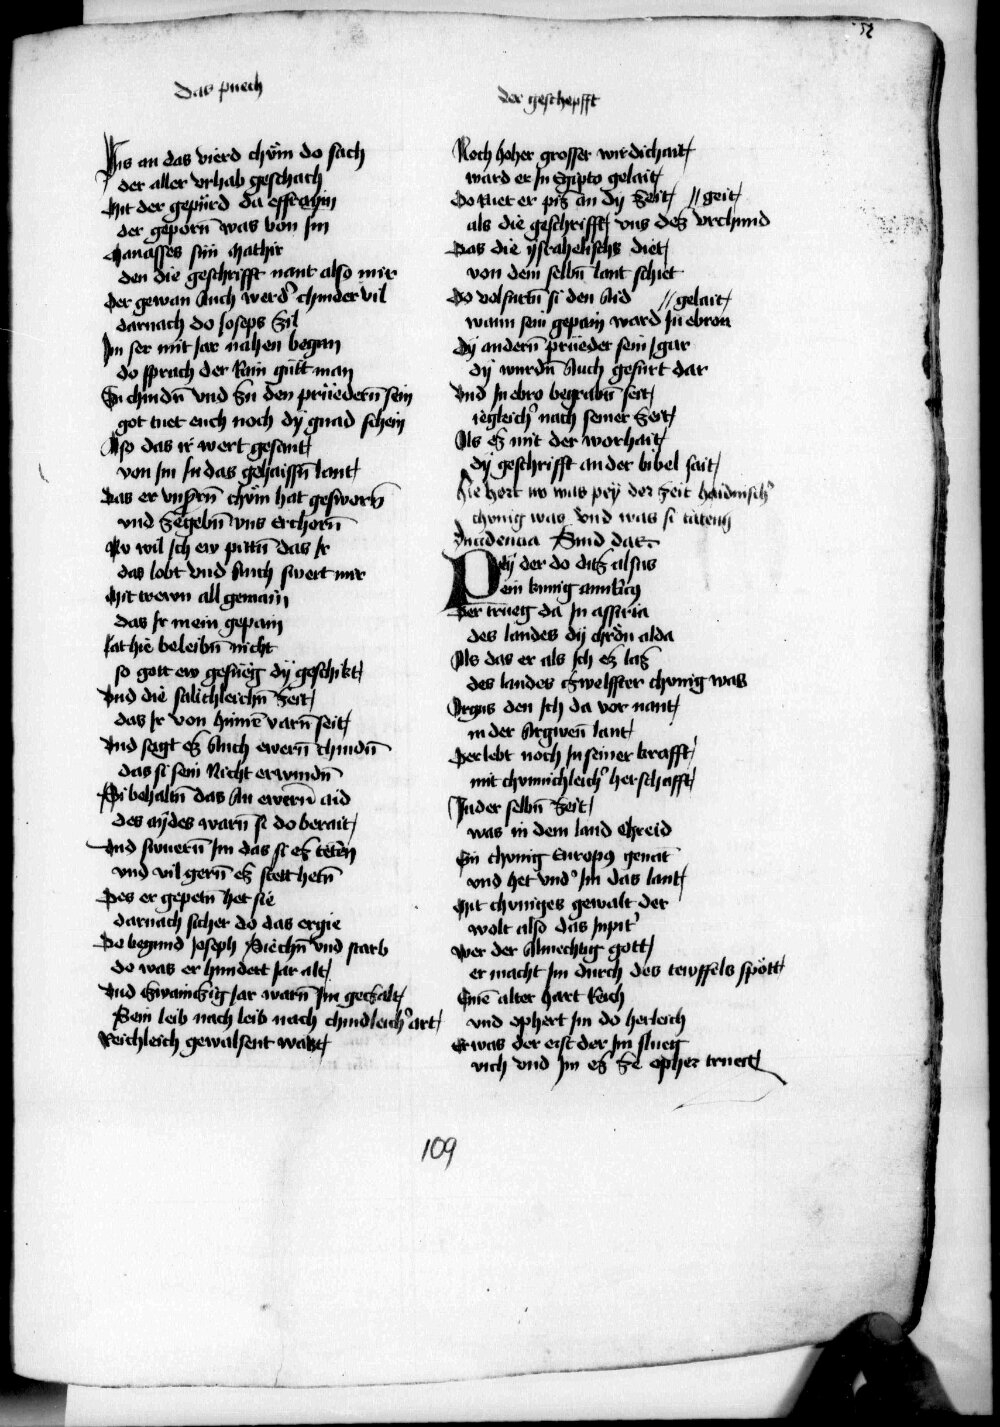 52
das puech
der geschepfft
Pis an das vierd chün do sach
der aller vrhab geschach
Mit der gepürd da effraym
der geporn̄ was von Im
Manasses sün Mathir
den die geschrifft nant also mir
Der gewan Auch werd' chinder vil
darnach do Joseps Zil
Im ser mit Jar nahen began
do sprach der Rain gütt man
Zu chindn̄ vnd Zu den prüedern̄ sein
got tuet euch noch dÿ gnad schein
Also das ir wert gesant
von Im In das gehaissn̄ lant
Das er vnsern̄ chün hat geswern̄
vnd Ze gebn̄ vns Erchorn̄
Nv wil Ich ew pittn̄ das Ir
das lobt vnd Auch swert mir
Mit trewn all gemain
das Ir mein gepain
Lat hie beleibn̄ nicht
so gott ew gefüeg dÿ geschikt
Vnd die sälichleichn̄ Zeit
das Ir von hinnē varn̄ seit
Vnd sagt eß Auch ewern̄ chindn̄
das si sein Nicht erwindn̄
Si behaltn̄ das An ewern̄ aid
des aÿdes warn̄ si do berait
Vnd swuern̄ Im das si eß tetēn
vnd vil gern̄ eß stett hetn̄
Des er gepetn̄ het sie
darnach sicher do das ergie
Do begund Joseph Siechn̄ vnd starb
do was er hundert Jar alt
Vnd Zwainczig Jar warn̄ Im geczalt
Sein leib nach leib nach chindleich' art
Reichleich gewalsent wart
Noch hoher grosser wirdichait
ward er In Egipto gelait
Do Riet er piß an dÿ Zeit // geit
als die geschrifft vns deß vrchund
Das die ysrahelischs diet
von dem selbn̄ lant schiet
Do volfurtn̄ si den Aid // gelait
wann sein gepain ward In ebron
Dÿ andern̄ prüeder sein Jgar
dÿ wurdn̄ Auch gefürt dar
Vnd In ebro begrabn̄ seit
iegleich' nach seiner Zeit
Als eß mit der worhait
dÿ geschrifft an der bibel sait
Hie hort wo was peÿ der Zeit haidnisch'
chunig was vnd was si täten
Incidencia Sind daz
Peÿ der do ditz alsus
ein kunig amit'
Der trueg da In assiria
des landes dÿ chrōn alda
Als das er als Ich eß laß
des landes czwelffter chunig was
Argus den Ich da vor nant
in der Argiven lant
Der lebt noch In seiner krafft
mit chunichleich' herschafft
In der selbn̄ Zeit
was in dem land Chreid
Ein chunig Europ9 genāt
vnd het vnd' Im das lant
Mit chuniges gewalt der
wolt also das Jupit'
wer der Almechtig gott
er macht Im durch des tewffels spött
Einē alter hart Reich
vnd ophert Im do herleich
Er was der erst der Im slueg
vich vnd Im eß Ze opher trueg
109